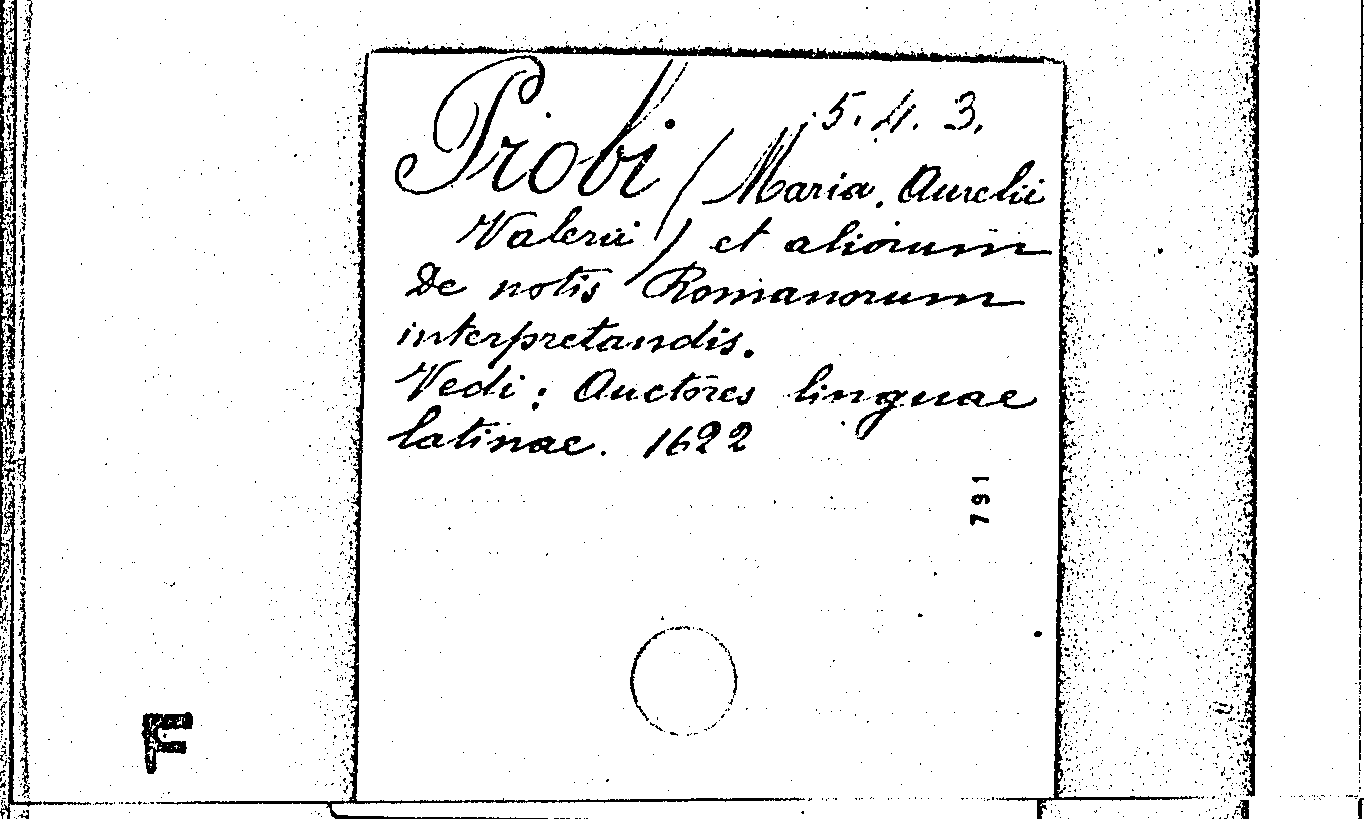 5.4.3.
Probi (Maria. Aurelii
Valerii) et aliorum
De notis Romanorum
interpretandis.
Vedi: Auctores linguae
latinae. 1622
791
F